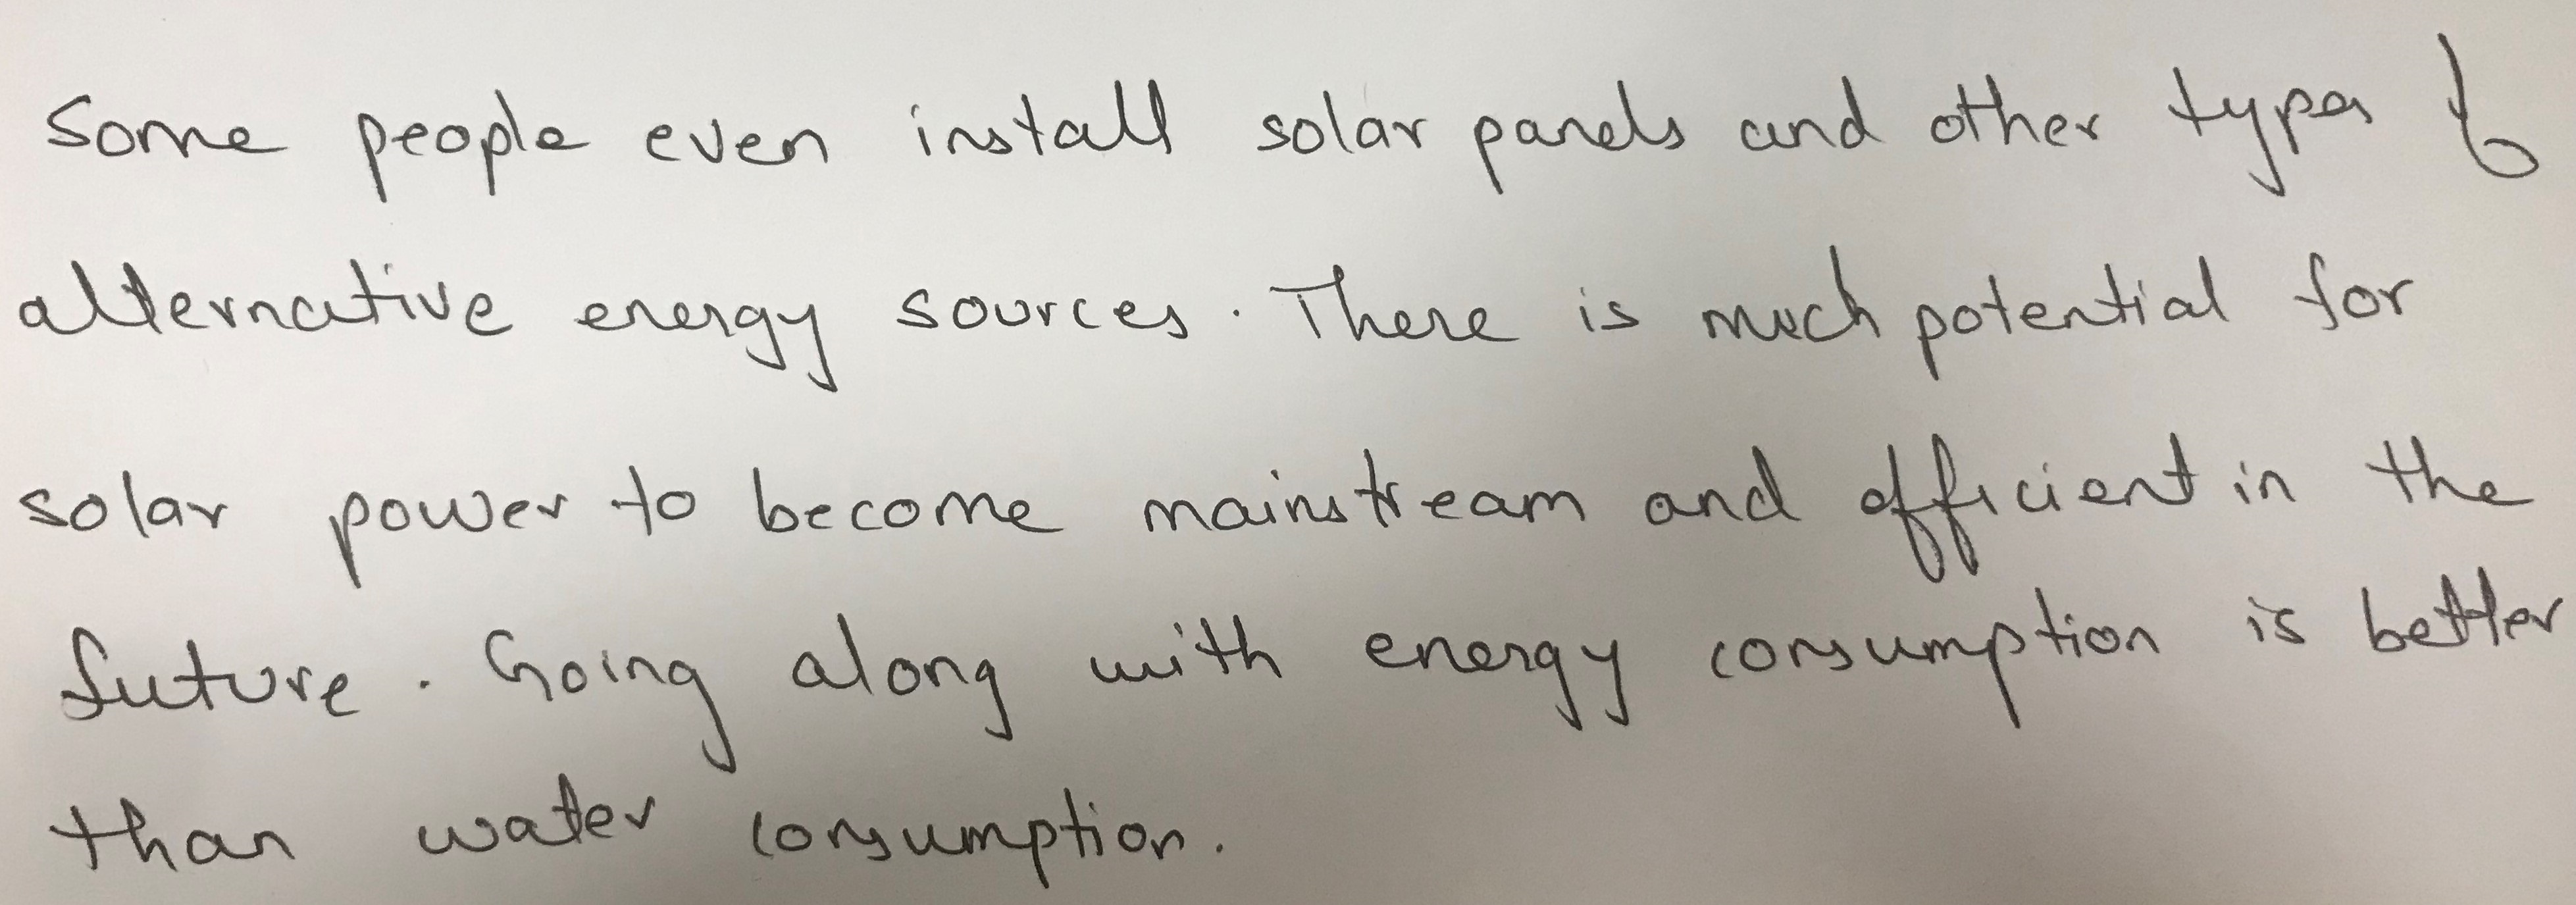 Some people even install solar panels and other types of
alternative energy sources. There is much potential for
solar power to become mainstream and efficient in the
future. Going along with energy consumption is better
than water consumption.